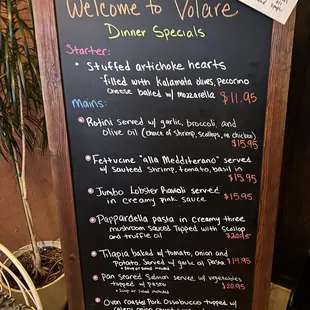 Welcome to Volare
Dinner Specials
Starter:
• Stuffed artichoke hearts
-filled with Kalamata olives, pecorino
cheese baked w/ mozzarella $11.95
Mains:
Rotini served w/ garlic, broccoli, and
olive oil (choice of shrimp, scallops, or chicken)
$15.95
Fettucine "alla Medditerano" served
w/ sauteed shrimp, tomato, basil in
$15.95
Jumbo Lobster Ravioli served
in creamy pink sauce $15.95
Pappardella pasta in creamy three
mushroom sauce Topped with scallop
and truffle oil $20.95
Tilapia baked w/ tomato, onion and
Potato. Served w/ garlic oil Pasta $19.95
+ Soup or salad included
Pan seared Salmon served w/ vegetables
topped w/ pasta $20.95
+ Soup or salad included
Oven roasted Pork Ossobucco topped w/